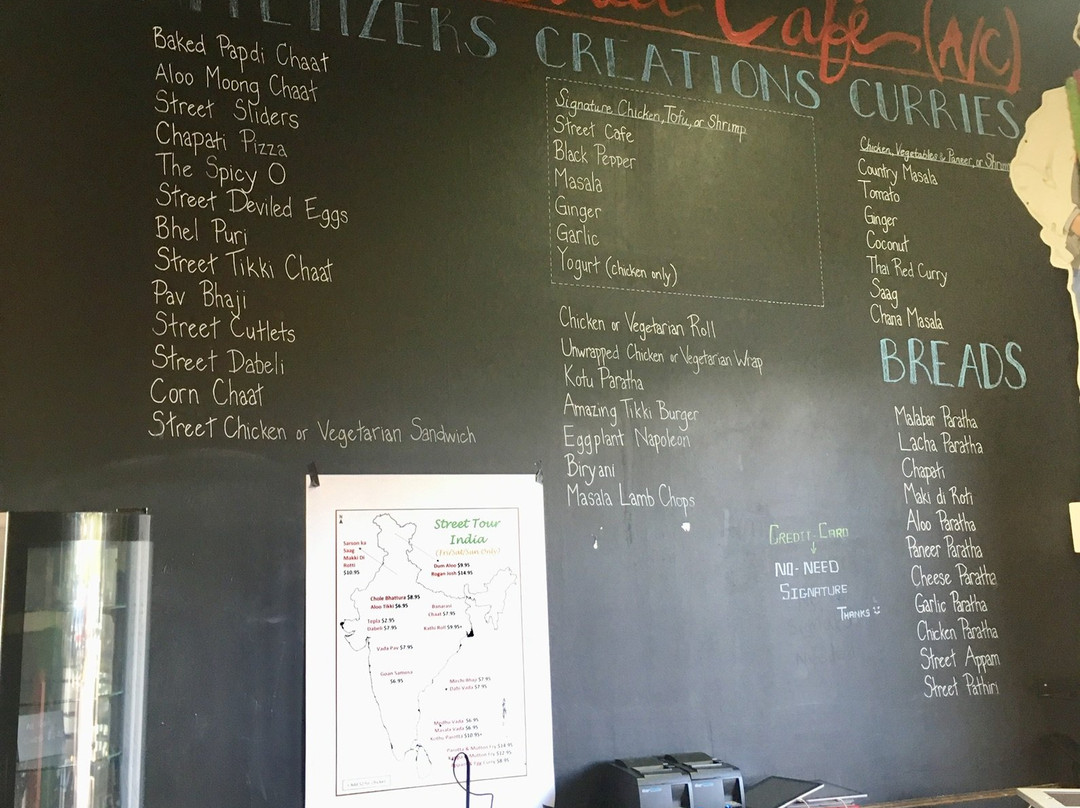 Café (A/C)
APPETIZERS
Baked Papdi Chaat
Aloo Moong Chaat
Street Sliders
Chapati Pizza
The Spicy O
Street Deviled Eggs
Bhel Puri
Street Tikki Chaat
Pav Bhaji
Street Cutlets
Street Dabeli
Corn Chaat
Street Chicken or Vegetarian Sandwich
CREATIONS
Signature Chicken, Tofu, or Shrimp
Street Cafe
Black Pepper
Masala
Ginger
Garlic
Yogurt (chicken only)
Chicken or Vegetarian Roll
Unwrapped Chicken or Vegetarian Wrap
Kotu Paratha
Amazing Tikki Burger
Eggplant Napoleon
Biryani
Masala Lamb Chops
CURRIES
Chicken, Vegetables & Paneer, or Shrimp
Country Masala
Tomato
Ginger
Coconut
Thai Red Curry
Saag
Chana Masala
BREADS
Malabar Paratha
Lacha Paratha
Chapati
Maki di Roti
Aloo Paratha
Paneer Paratha
Cheese Paratha
Garlic Paratha
Chicken Paratha
Street Appam
Street Pathiri
Credit-Card
↓
NO-NEED
SIGNATURE
THANKS
Street Tour
India
(Fri/Sat/Sun Only)
Sarson ka
Saag
Makki Di
Rotti
$10.95
Dum Aloo $9.95
Rogan Josh $14.95
Chole Bhattura $8.95
Aloo Tikki $6.95
Banarasi
Chaat $7.95
Tepla $2.95
Dabeli $7.95
Kathi Roll $9.95+
Vada Pav $7.95
$6.95
Mirchi Bhaji $7.95
Dahi Vada $7.95
Medhu Vada $6.95
Masala Vada $6.95
Kothu Parotta $10.95+
Parotta & Mutton Fry $14.95
Mutton Fry $12.95
Egg Curry $8.95